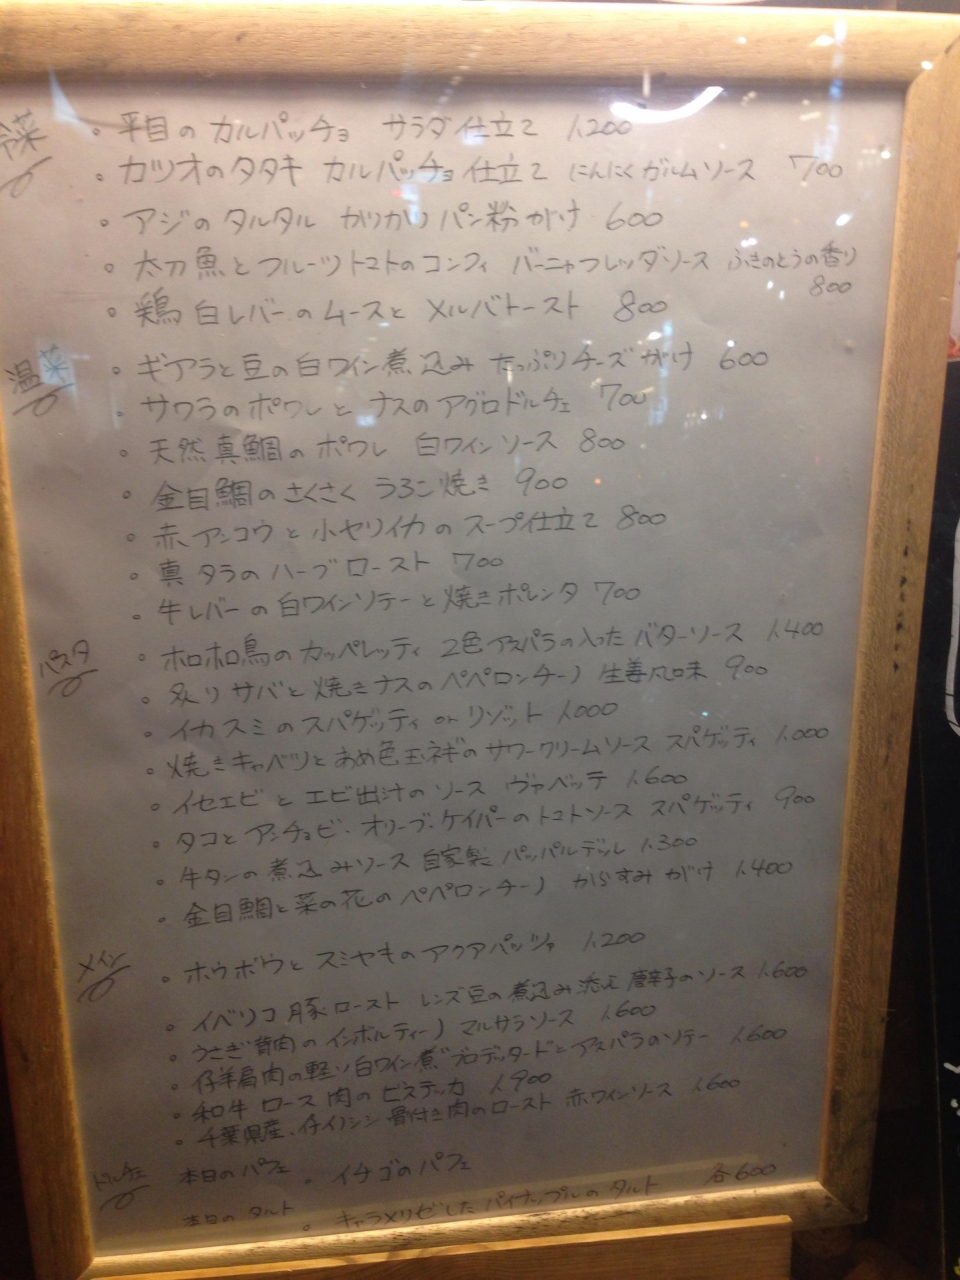 冷菜
・平目のカルパッチョ サラダ仕立て 1,200
・カツオのタタキ カルパッチョ仕立て にんにくガルムソース 700
・アジのタルタル カリカリパン粉がけ 600
・太刀魚とフルーツトマトのコンフィ バーニャフレッダソース ふきのとうの香り
800
・鶏白レバーのムースと メルバトースト 800
温菜
・ギアラと豆の白ワイン煮込み たっぷりチーズがけ 600
・サワラのポワレと ナスのアグロドルチェ 700
・天然真鯛のポワレ 白ワインソース 800
・金目鯛のさくさく うろこ焼き 900
・赤アンコウと小ヤリイカのスープ仕立て 800
・真タラのハーブロースト 700
・牛レバーの白ワインソテーと焼きポレンタ 700
パスタ
・ホロホロ鳥のカッペレッティ 2色アスパラの入ったバターソース 1,400
・炙りサバと焼きナスのペペロンチーノ 生姜風味 900
・イカスミのスパゲッティ or リゾット 1,000
・焼きキャベツとあめ色玉ネギのサワークリームソース スパゲッティ 1,000
・イセエビとエビ出汁のソース ヴァベッテ 1,600
・タコとアンチョビ・オリーブ・ケイパーのトマトソース スパゲッティ 900
・牛タンの煮込みソース 自家製パッパルデッレ 1,300
・金目鯛と菜の花のペペロンチーノ からすみがけ 1,400
メイン
・ホウボウとスミヤキのアクアパッツァ 1,200
・イベリコ豚ロースト レンズ豆の煮込み添え 唐辛子のソース 1,600
・うさぎ背肉のインボルティーノ マルサラソース 1,600
・仔羊肩肉の軽い白ワイン煮 ブロデッタードとアスパラのソテー 1,600
・和牛ロース肉のビステッカ 1,900
・千葉県産、仔イノシシ骨付き肉のロースト 赤ワインソース 1,600
ドルチェ
本日のパフェ ・イチゴのパフェ
本日のタルト ・キャラメリゼしたパイナップルのタルト 各600